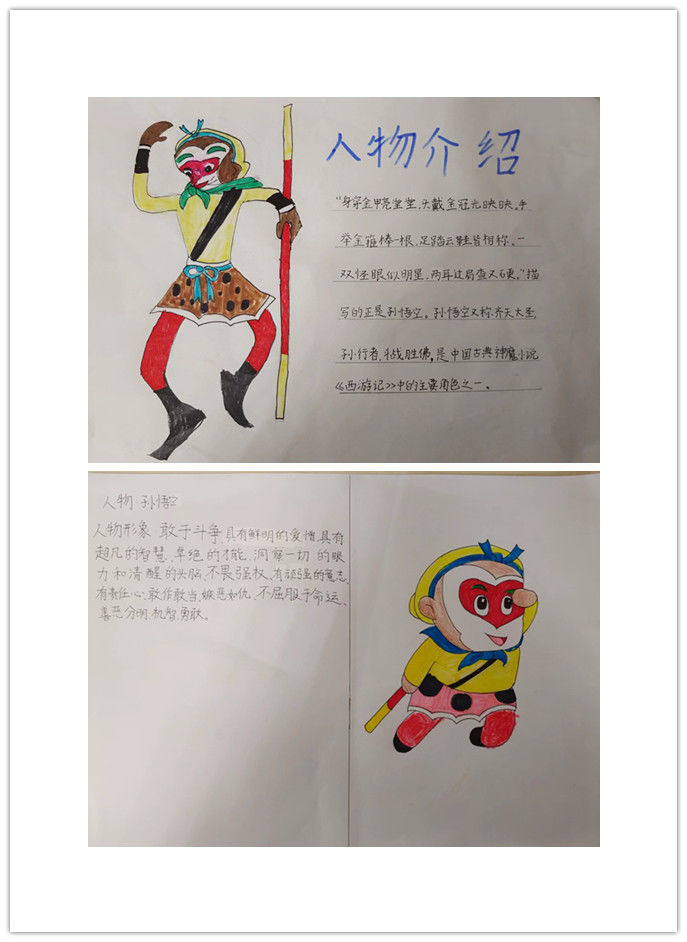 人物介绍
“身穿金甲亮堂堂,头戴金冠光映映。手
举金箍棒一根,足踏云鞋皆相称。一
双怪眼似明星,两耳过肩查又硬。”描
写的正是孙悟空。孙悟空又称齐天大圣,
孙行者,斗战胜佛,是中国古典神魔小说
《西游记》中的主要角色之一。
人物:孙悟空
人物形象:敢于斗争,具有鲜明的爱憎,具有
超凡的智慧、卓绝的才能、洞察一切的眼
力和清醒的头脑,不畏强权,有顽强的意志,
有责任心、敢作敢当、嫉恶如仇、不屈服于命运、
善恶分明、机智勇敢。